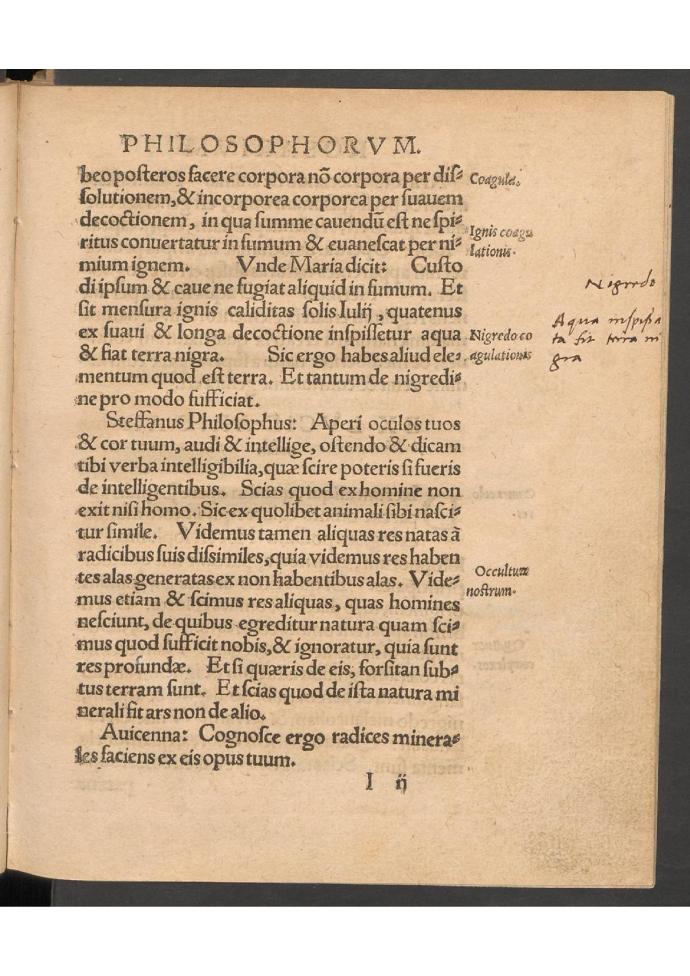 PHILOSOPHORVM.
beo posteros facere corpora nō corpora per dis⸗
solutionem, & incorporea corporca per suauem
decoctionem, in qua summe cauendū est ne spi⸗
ritus conuertatur in fumum & euanescat per ni⸗
mium ignem. Vnde Maria dicit: Custo
di ipsum & caue ne fugiat aliquid in fumum. Et
sit mensura ignis caliditas solis Iulij, quatenus
ex suaui & longa decoctione inspissetur aqua
& fiat terra nigra. Sic ergo habes aliud ele⸗
mentum quod est terra. Et tantum de nigredi⸗
ne pro modo sufficiat.
Steffanus Philosophus: Aperi oculos tuos
& cor tuum, audi & intellige, ostendo & dicam
tibi verba intelligibilia, quæ scire poteris si fueris
de intelligentibus. Scias quod ex homine non
exit nisi homo. Sic ex quolibet animali sibi nasci⸗
tur simile. Videmus tamen aliquas res natas à
radicibus suis dissimiles, quia videmus res haben
tes alas generatas ex non habentibus alas. Vide⸗
mus etiam & scimus res aliquas, quas homines
nesciunt, de quibus egreditur natura quam sci⸗
mus quod sufficit nobis, & ignoratur, quia sunt
res profundæ. Et si quæris de eis, forsitan sub⸗
tus terram sunt. Et scias quod de ista natura mi
nerali fit ars non de alio.
Auicenna: Cognosce ergo radices minera⸗
les faciens ex eis opus tuum.
I ij
Coagula.
Ignis coagu
lationis.
Nigredo co
agulationis
Occultum
nostrum.
Nigredo
Aqua inspissa
ta fit terra ni
gra